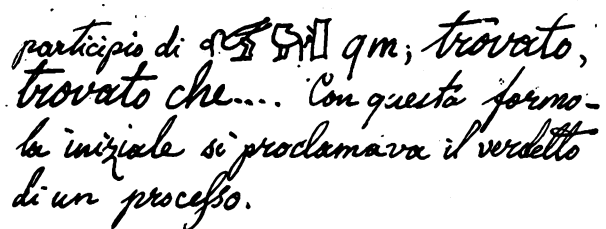 participio di qm; trovato,
trovato che.... Con questa formo-
la iniziale si proclamava il verdetto
di un proceſso.